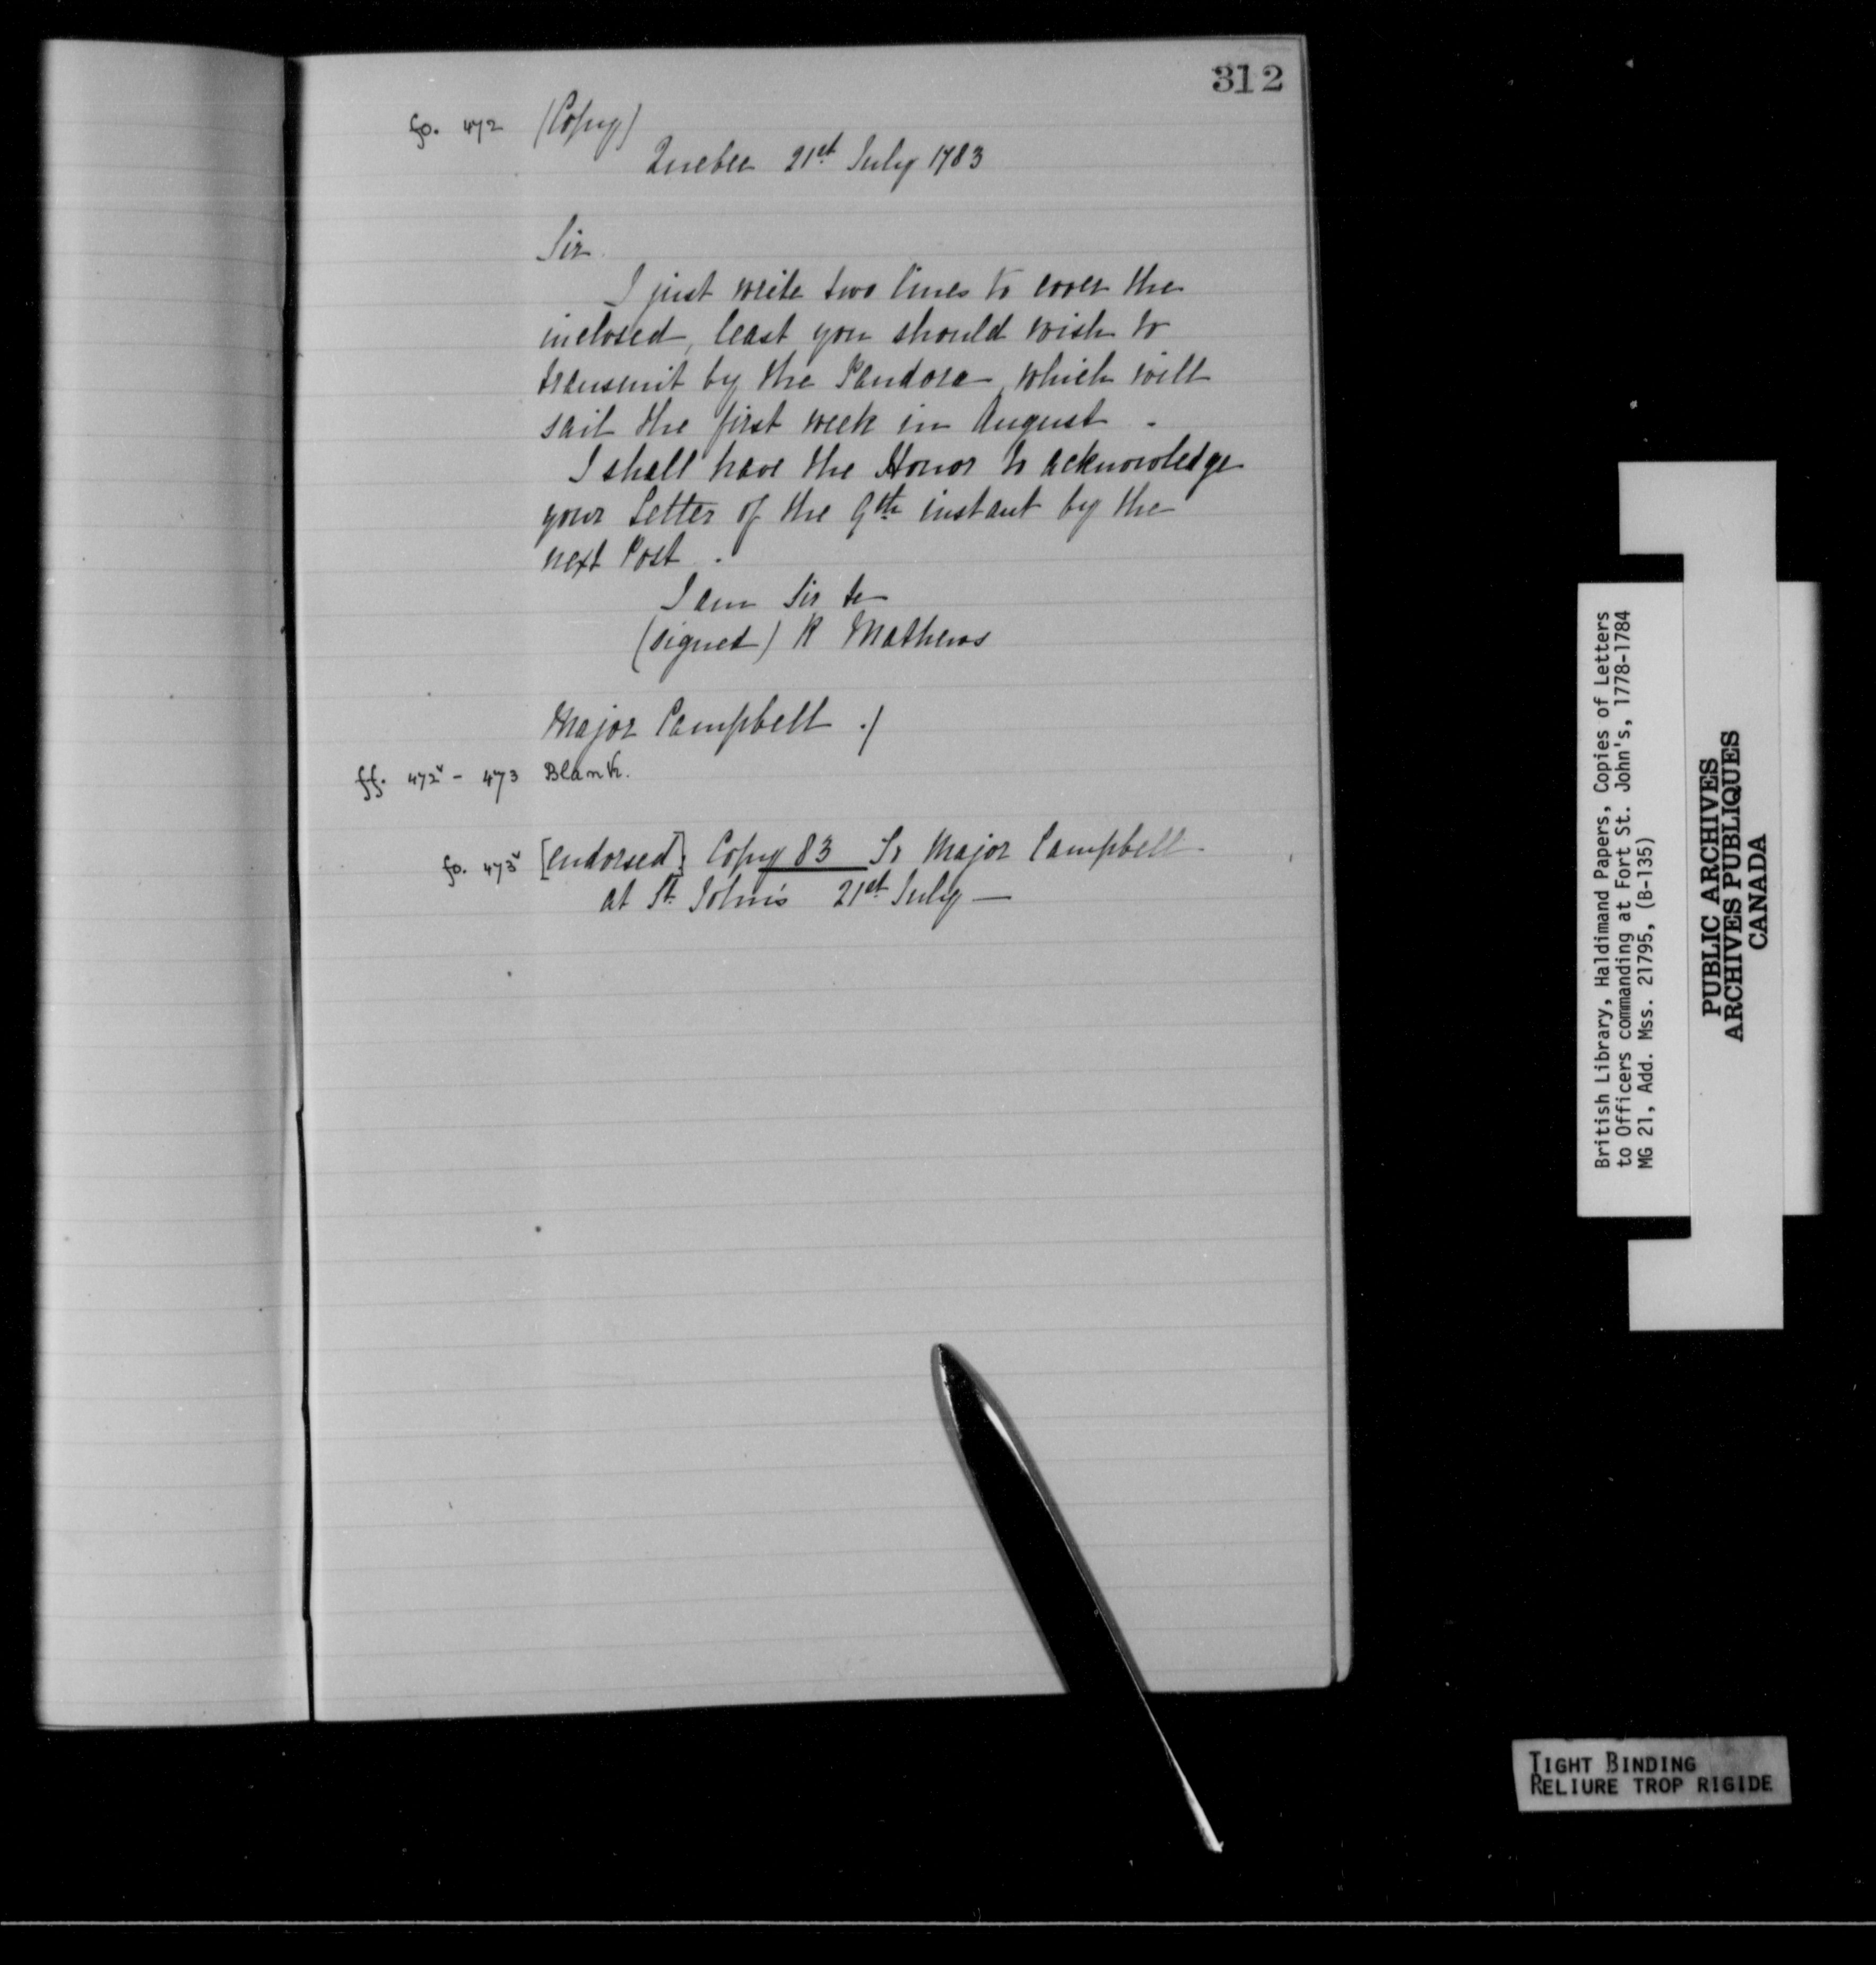 312
fo. 472 (Copy)
Quebec 21st July 1783
Sir
I just write two lines to cover the
inclosed, least you should wish to
transmit by the Pandora, which will
sail the first week in August .
I shall have the Honor to acknowledge
your Letter of the 9th instant by the
next Post .
I am Sir &c
(signed) R Mathews
Major Campbell ./
ff. 472v - 473 Blank.
fo. 473v [endorsed] Copy 83 To Major Campbell
at St Johns 21st July —
British Library, Haldimand Papers, Copies of Letters
to Officers commanding at Fort St. John's, 1778-1784
MG 21, Add. Mss. 21795, (B-135)
PUBLIC ARCHIVES
ARCHIVES PUBLIQUES
CANADA
TIGHT BINDING
RELIURE TROP RIGIDE